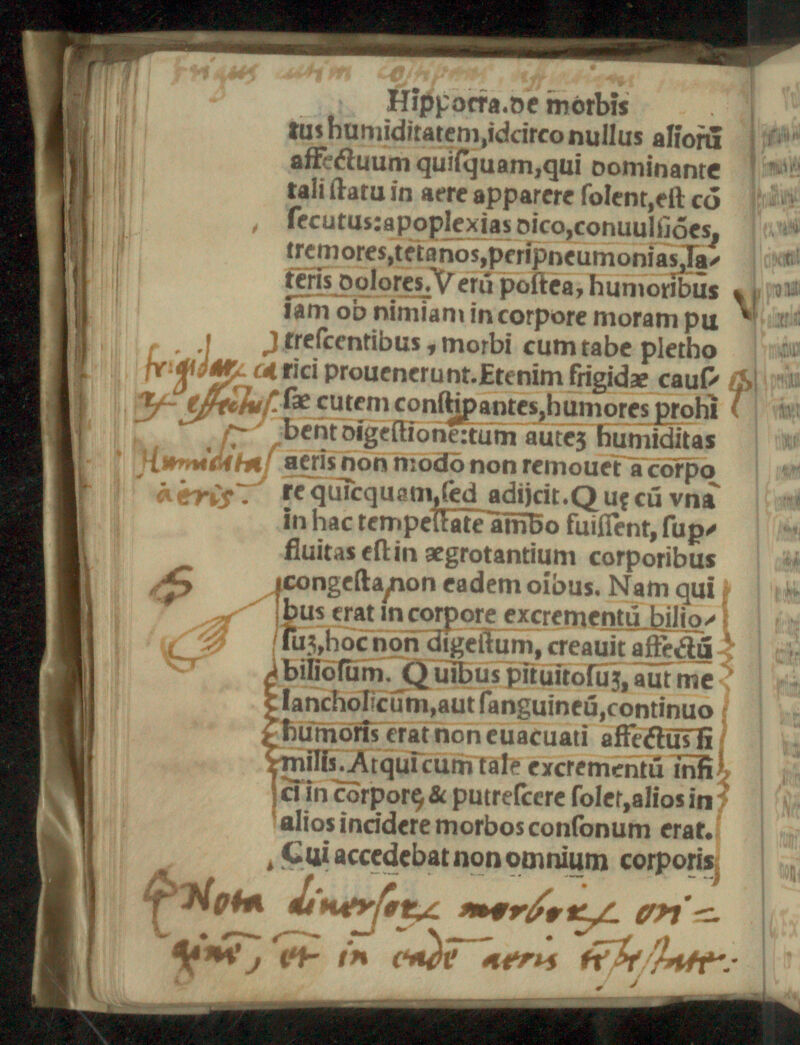 frigus cutim
Hippocra.de morbis
tus humiditatem,idcirco nullus aliorū
affectuum quiſquam,qui dominante
tali ſtatu in aere apparere ſolent,eſt cō
ſecutus:apoplexias dico,conuulſiões,
tremores,tetanos,peripneumonias,la⸗
teris dolores.Verū poſtea, humoribus
iam ob nimiam in corpore moram pu
treſcentibus, morbi cum tabe pletho
rici prouenerunt.Etenim frigidæ cauſ⸗
ſæ cutem conſtipantes,humores prohi
bent digeſtione:tum autēȝ humiditas
aeris non modo non remouet a corpo
re quicquam,ſed adijcit.Quę cū vna
in hac tempeſtate ambo fuiſſent, ſup⸗
fluitas eſt in ægrotantium corporibus
congeſta,non eadem oibus. Nam qui
bus erat in corpore excrementū bilio⸗
ſuȝ,hoc non digeſtum, creauit affectū
bilioſum. Quibus pituitoſuȝ, aut me
lancholicum,aut ſanguineū,continuo
humoris erat non euacuati affectus ſi
milis.Atqui cum tale excrementū inſi
ci in corpore, & putreſcere ſolet,alios in
alios incidere morbos conſonum erat.
Cui accedebat non omnium corporis
frigidarꝝ ca
effectus.
Humiditas
aeris.
Nota diuersorꝝ morborꝝ ori=
gine, et in eadē aeris